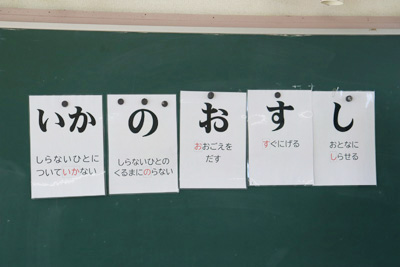 いか
しらないひとに
ついていかない
の
しらないひとの
くるまにのらない
お
おおごえを
だす
す
すぐにげる
し
おとなに
しらせる